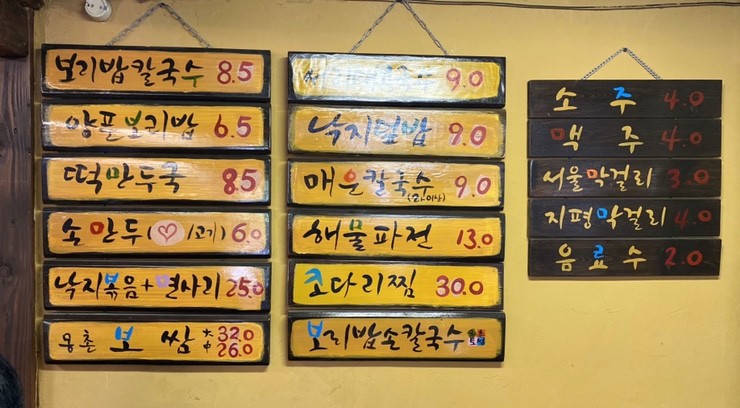 보리밥칼국수 8.5
양푼보리밥 6.5
떡만두국 8.5
손만두(♡/고기) 6.0
낙지볶음+면사리 25.0
용촌 보쌈 大 32.0
中 26.0
9.0
낙지덮밥 9.0
매운칼국수 9.0
해물파전 13.0
코다리찜 30.0
보리밥손칼국수
소주 4.0
맥주 4.0
서울막걸리 3.0
지평막걸리 4.0
음료수 2.0